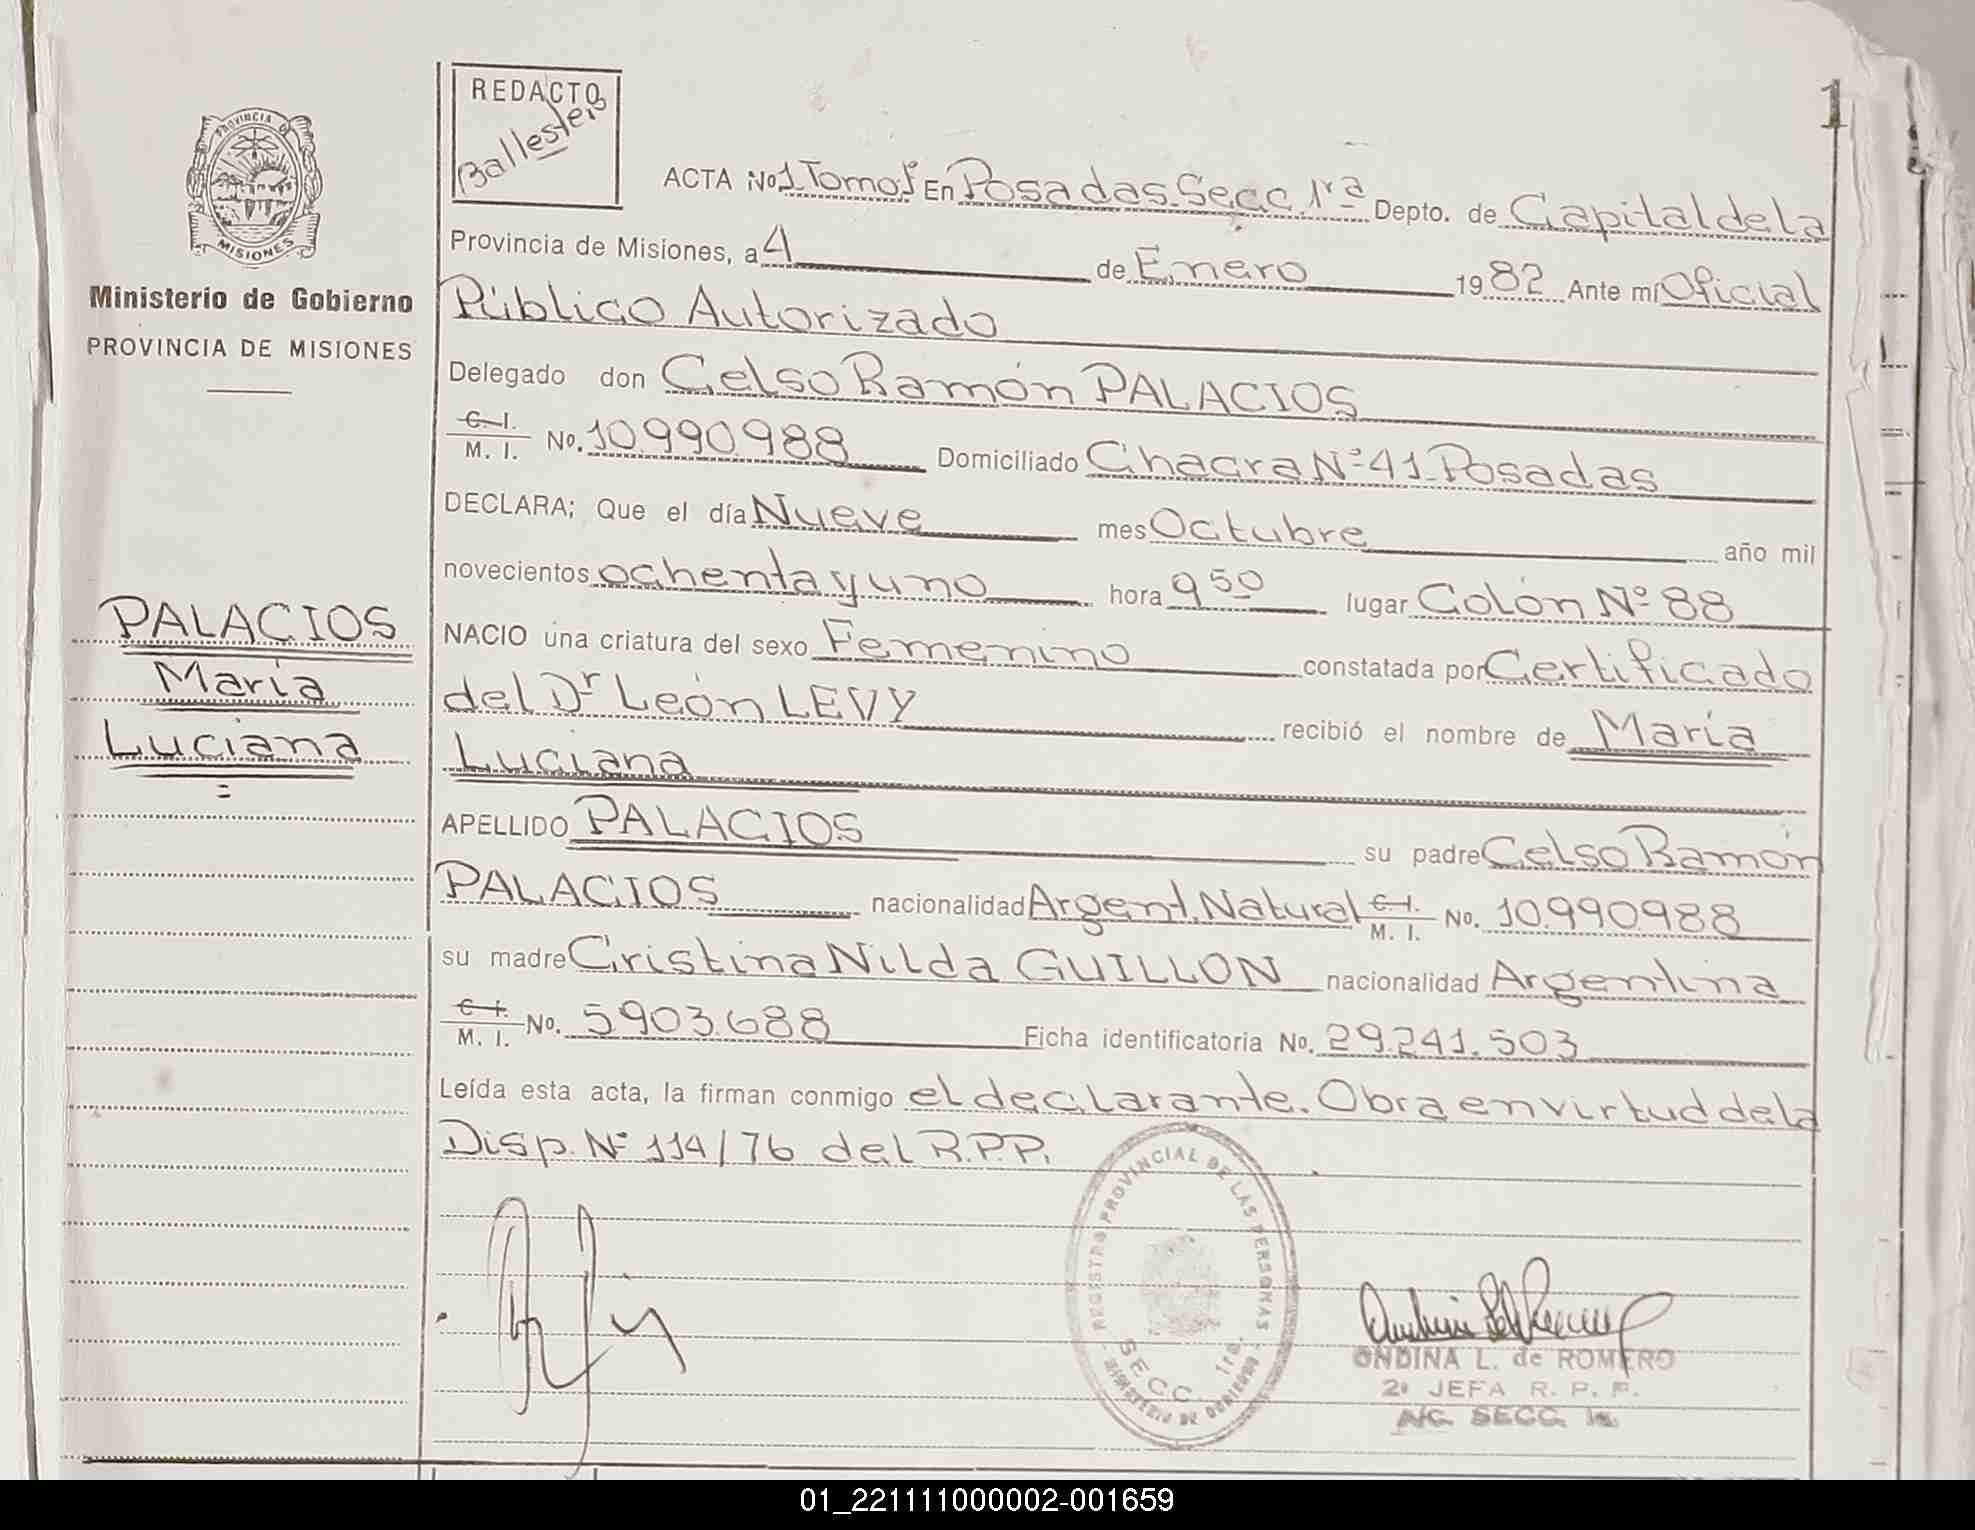 1
REDACTO
Ballesteis
PROVINCIA D
MISIONES
Ministerio de Gobierno
PROVINCIA DE MISIONES
PALACIOS
María
Luciana
ACTA No 1 Tomo 1º En Posadas. Secc. 1ra Depto. de Capital de la
Provincia de Misiones, a 4 de Enero 1982 Ante mí Oficial
Público Autorizado
Delegado don Celso Ramón PALACIOS
C. I.
M. I. No. 10.990.988 Domiciliado Chacra Nº 41 Posadas
DECLARA; Que el día Nueve mes Octubre año mil
novecientos ochenta y uno hora 9 50 lugar Colón Nº 88
NACIO una criatura del sexo Femenino constatada por Certificado
del Dr León LEVY recibió el nombre de María
Luciana
APELLIDO PALACIOS su padre Celso Ramón
PALACIOS nacionalidad Argent. Natural C. I. M. I. No. 10.990.988
su madre Cristina Nilda GUILLON nacionalidad Argentina
C. I.
M. I. No. 5.903.688 Ficha identificatoria No. 29.241.503
Leída esta acta, la firman conmigo el declarante. Obra en virtud de la
Disp. Nº 114/76 del R.P.P.
REGISTRO PROVINCIAL DE LAS PERSONAS
SECC. 1ra.
MINISTERIO DE GOBIERNO
ONDINA L. de ROMERO
2º JEFA R. P. P.
A/C. SECC. 1a.
01_221111000002-001659